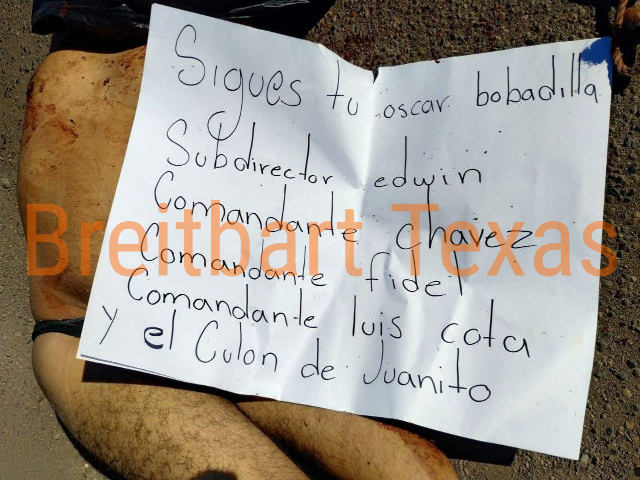 Sigues tu oscar bobadilla
Subdirector edwin
Comandante chavez
Breitbart Texas
Comandante fidel
Comandante luis cota
y el Culon de Juanito